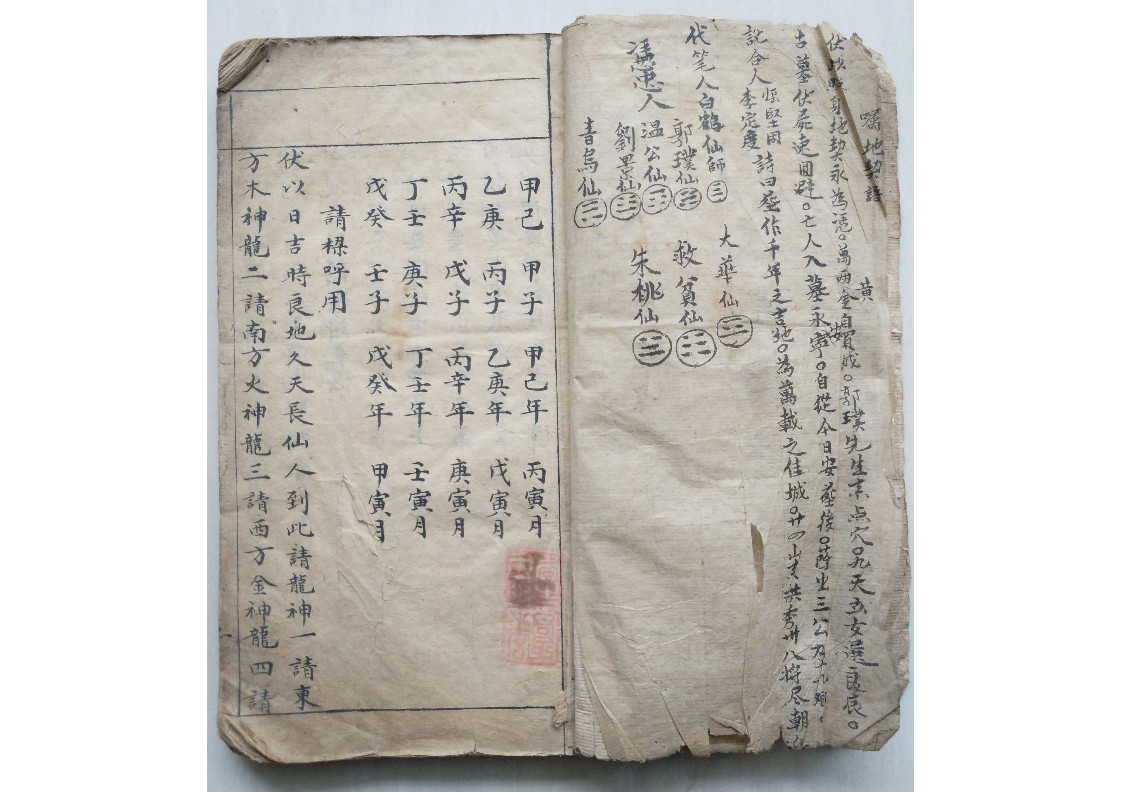 囑地契語
伏以 地契永為憑。萬兩黃金自買成。郭璞先生來点穴。九天玄女選良辰。
古墓伏屍速回避。亡人入墓永安寧。自從今日安葬後。蔭出三公
說合人 李定度 張堅固 詩曰葬作千年之吉地。為萬載之佳城。廿四山 洪秀 八將尽朝
代笔人白鶴仙師 大華仙
郭璞仙 救貧仙
憑中人 温公仙 朱桃仙
劉景仙
青烏仙
甲己 甲子 甲己年 丙寅月
乙庚 丙子 乙庚年 戊寅月
丙辛 戊子 丙辛年 庚寅月
丁壬 庚子 丁壬年 壬寅月
戊癸 壬子 戊癸年 甲寅月
請樑呼用
伏以日吉時良地久天長仙人到此請龍神一請東
方木神龍二請南方火神龍三請西方金神龍四請